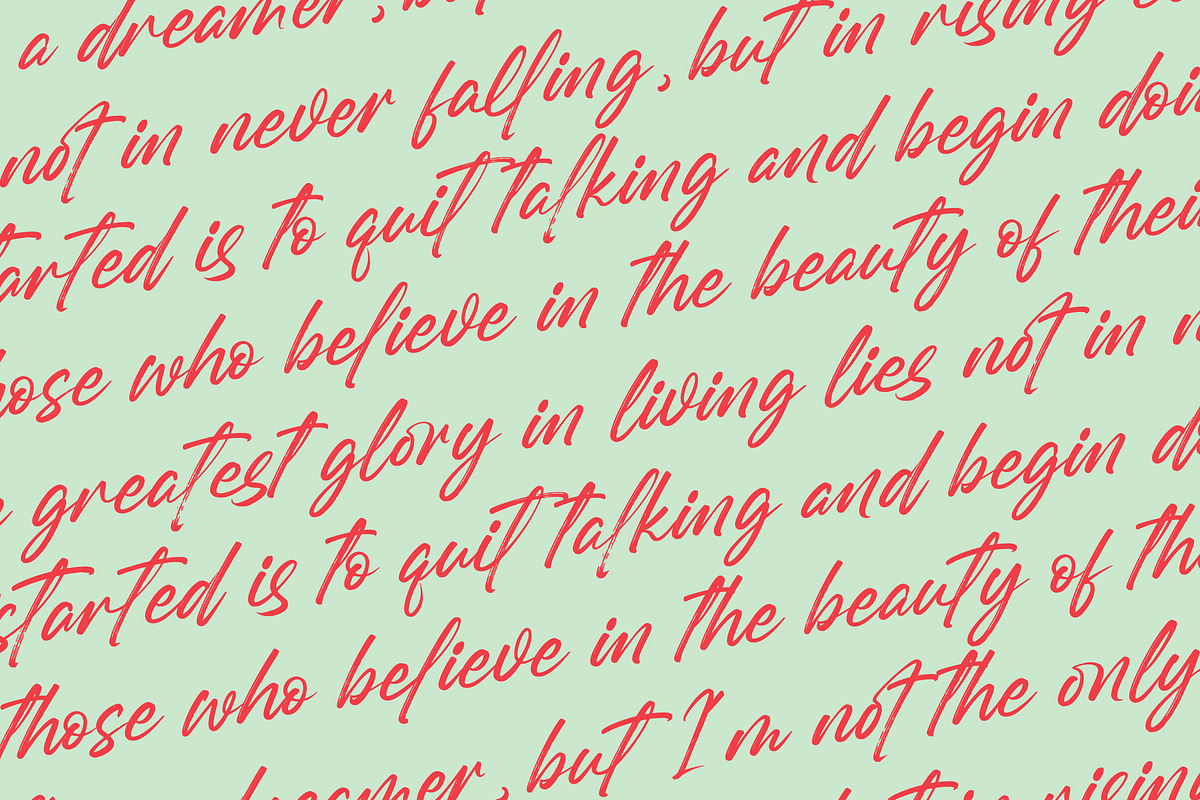 a dreamer, but
not in never falling, but in rising
started is to quit talking and begin doing
those who believe in the beauty of their
greatest glory in living lies not in
started is to quit talking and begin
those who believe in the beauty of
dreamer, but I'm not the only
in rising